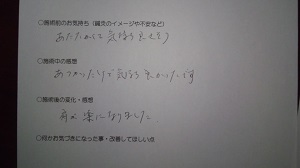 ○施術前のお気持ち（鍼灸のイメージや不安など）
あたたかくて気持ち良さそう
○施術中の感想
あつかったけど気持ち良かったです
○施術後の変化・感想
肩が楽になりました。
○何かお気づきになった事・改善してほしい点